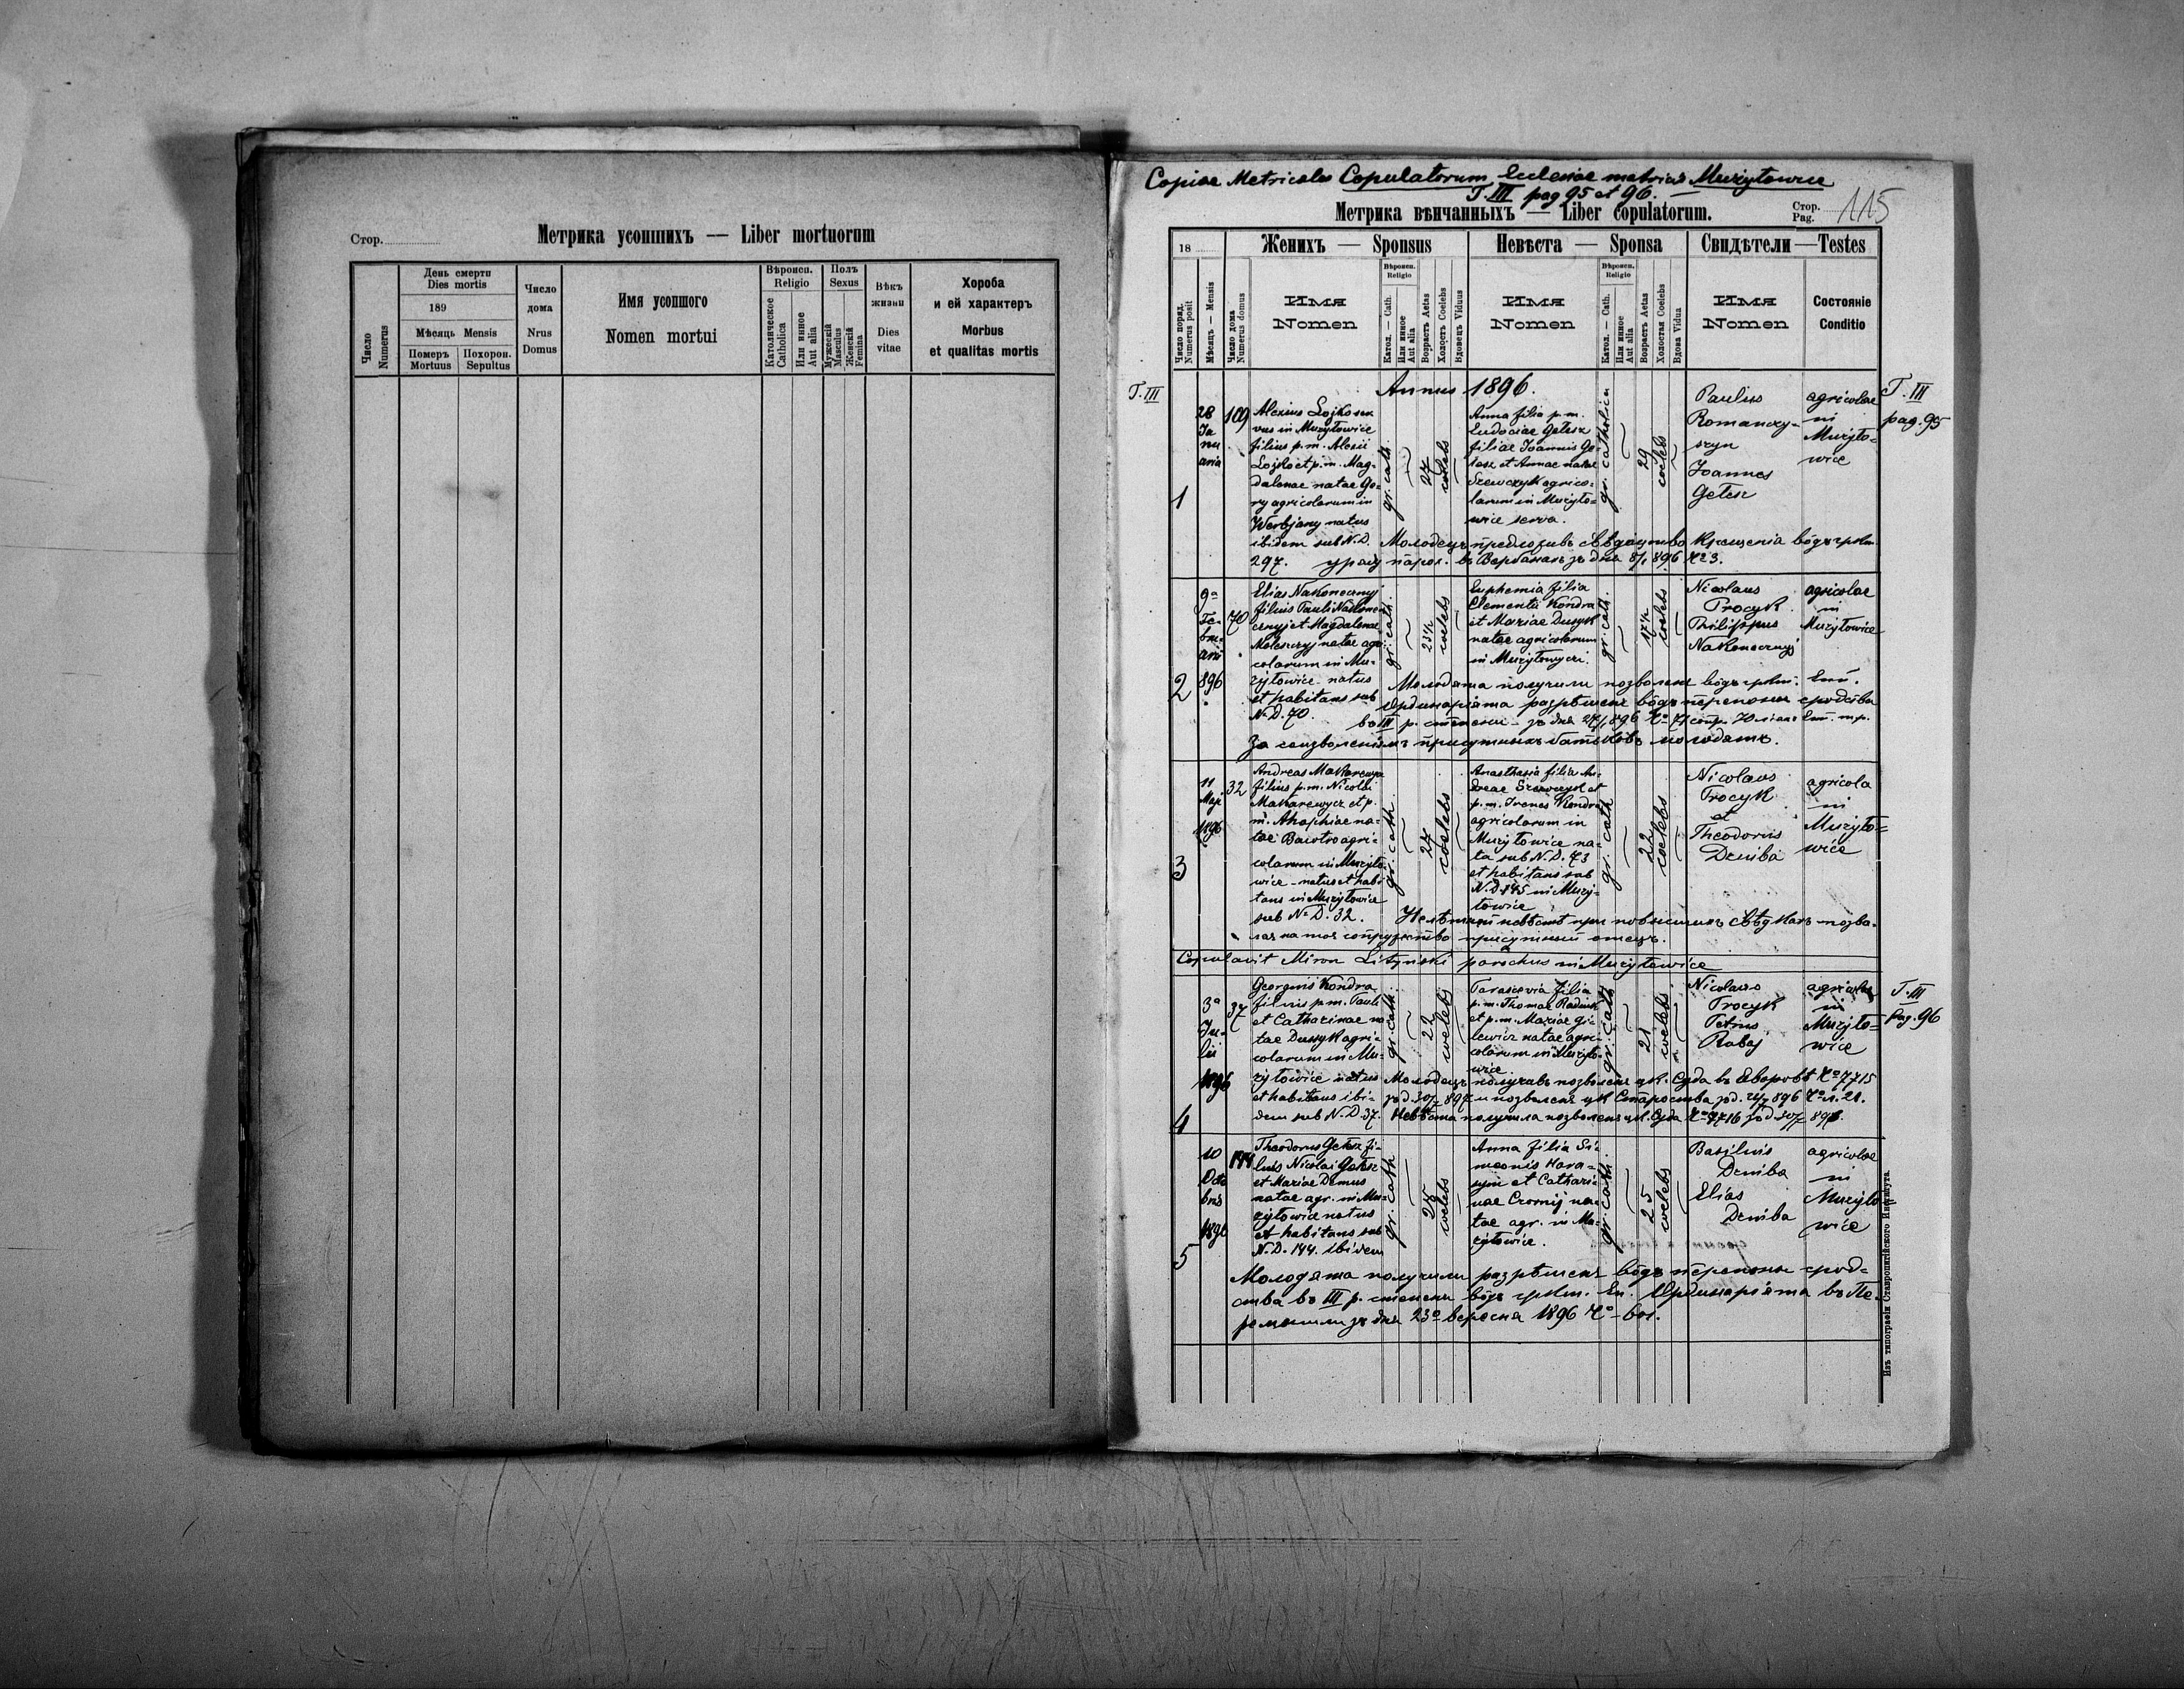 Стор.
Метрика усопшихъ — Liber mortuorum
Число
Numerus
День смерти
Dies mortis
189
Мѣсяць Mensis
Померъ
Mortuus
Похорон.
Sepultus
Число
дома
Nrus
Domus
Имя усопшого
Nomen mortui
Вѣроисп.
Religio
Католическое
Catholica
Или инное
Aut alia
Полъ
Sexus
Мужескій
Masculus
Женскій
Femina
Вѣкъ
жизни
Dies
vitae
Хороба
и ей характеръ
Morbus
et qualitas mortis
Copiae Metricales Copulatorum Ecclesiae matricis Mużyłowice
T. III pag 95 et 96.
Метрика вѣнчанныхъ — Liber copulatorum.
Стор.
Pag.
115
18
Женихъ — Sponsus
Невѣста — Sponsa
Свидѣтели — Testes
Число поряд.
Numerus posit
Мѣсяць — Mensis
Число дома
Numerus domus
Имя
Nomen
Вѣроисп.
Religio
Катол. — Cath.
Или инное
Aut alia
Возрастъ Aetas
Холостъ Coelebs
Вдовецъ Viduus
Имя
Nomen
Вѣроисп.
Religio
Катол. — Cath.
Или инное
Aut alia
Возрастъ Aetas
Холостая Coelebs
Вдова Vidua
Имя
Nomen
Состояніе
Conditio
T. III
Annus 1896.
T. III
pag. 95
1
28
Ja
nu
aria
109
Alexius Łojko ser
vus in Mużyłowice
filius p. m. Alexii
Łojko et p. m. Mag-
dalenae natae Go-
ry agricolarum in
Werbjany natus
ibidem sub N. D.
297.
gr. cath.
27
coelebs
Anna filia p. m.
Eudociae Getesz
filiae Joannis Ge-
tesz et Annae natae
Szewczyk agrico-
larum in Mużyło-
wice serva.
gr. catholica
29
coelebs
Paulus
Romanczy-
szyn
Joannes
Getesz
agricolae
in
Mużyło-
wice
Молодецъ предложивъ свѣдоцтво крещенія вôдъ
уряду парох. въ Вербянахъ зъ дня 8/1 896 Ч. 3.
2
9a
Fe-
bru-
arii
896
70
Elias Nakoneczny
filius Pauli Nakone
czny et Magdalenae
natae agri
colarum in Mu-
żyłowice natus
et habitans sub
N. D. 70.
gr. cath.
23½
coelebs
Euphemia filia
Clementii Kondra
et Mariae Dusyk
natae agricolarum
in Mużyłowyci.
gr. cath.
17½
coelebs
Nicolaus
Procyk
Philippus
Nakonecznyj
agricolae
in
Mużyłowice
Молодята получили позволенє вôдъ
Ординаріята разрѣшенє вôдъ перепоны сродства
въ III р. степени зъ дня
За соизволенієм присутныхъ батькôвъ молодятъ.
3
11
Maji
1896
32
Andreas Makarewycz
filius p. m. Nicolai
Makarewycz et p.
m. Ahaphiae na-
tae agri-
colarum in Mużyło
wice - natus et habi
tans in Mużyłowice
sub N. D. 32.
gr. cath.
24
coelebs
Anasthasia filia An-
dreae Szewczyk et
p. m. Irenes Kondra
agricolarum in
Mużyłowice na-
ta sub N. D. 73
et habitans sub
N. D. 145 in Muży-
łowice
gr. cath
22
coelebs
Nicolaus
Trocyk
et
Theodorus
Dziuba
agricola
in
Mużyło-
wice
присутный отецъ.
Copulavit Miron Lityński parochus in Mużyłowice
T. III
pag. 96
4
3a
Ju-
lii
1896
37
Georgius Kondra
filius p. m. Pauli
et Catharinae na
tae Dussyk agri-
colarum in Mu-
żyłowice natus
et habitans ibi-
dem sub N. D. 37.
gr. cath.
22
coelebs
Parascevia filia
p. m. Thomae
et p. m. Mariae Gi-
lewicz natae agri-
colarum in Mużyło-
wice
gr. cath
21
coelebs
Nicolaus
Trocyk
Petrus
Rabaj
agricolae
in
Mużyło-
wice
Молодецъ получивъ позволенє цк. Суда въ Яворовѣ Ч. 7715
Невѣста получила позволенє цк. Суда Ч. 7716
5
10
Octo
bris
1896
144
Theodorus Getesz fi-
lius Nicolai Getesz
et Mariae Demus
natae agr. in Mu-
żyłowice natus
et habitans sub
N. D. 144. ibidem
gr. cath
25
coelebs
Anna filia Si-
meonis Hara-
sym et Cathari-
nae Czornij na-
tae agr. in Mu-
żyłowice.
gr. cath.
25
coelebs
Basilius
Dziuba
Elias
Dziuba
agricolae
in
Mużyło-
wice
Молодята получили разрѣшенє вôдъ перепоны срод-
ства въ III р. степени вôдъ Еп. Ординаріята въ Пе-
ремышли зъ дня 23о вересня 1896 Ч.
Изъ типографіи Ставропигійского Института.